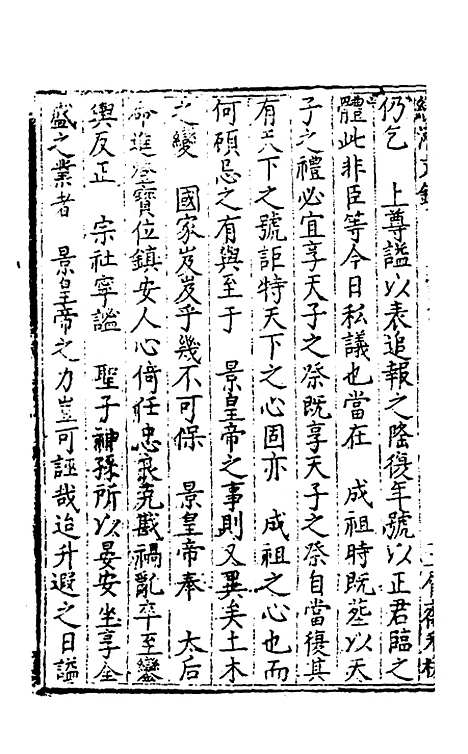 仍乞　上尊謚以表追報之隆復年號以正君臨之
體此非臣等今日私議也當在　成祖時既葬以天
子之禮必宜享天子之祭既享天子之祭自當復其
有天下之號詎特天下之心固亦　成祖之心也而
何顧忌之有與至于　景皇帝之事則又異矣土木
之變　國家岌岌乎幾不可保　景皇帝奉　太后
命進登寶位鎮安人心倚任忠良克戡禍亂卒至鑾
輿反正　宗社寧謐　聖子神孫所以晏安坐享全
盛之業者　景皇帝之力豈可誣哉迨升遐之日謚